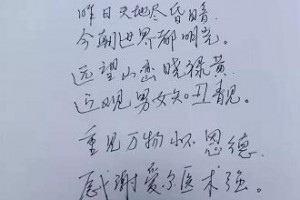 昨日天地尽昏暗
今朝世界都明亮。
远望山峦晓绿黄
近观男女知丑靓。
重见万物怀恩德
感谢爱尔医术强。